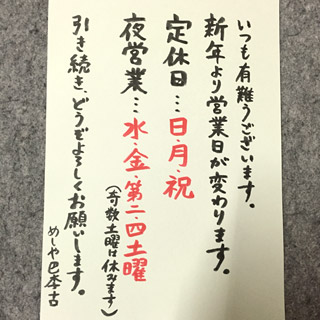 いつも有難うございます。
新年より営業日が変わります。
定休日…日・月・祝
夜営業…水・金・第二・四土曜
(奇数土曜は休みます)
引き続き、どうぞよろしくお願いします。
めしや巴本古